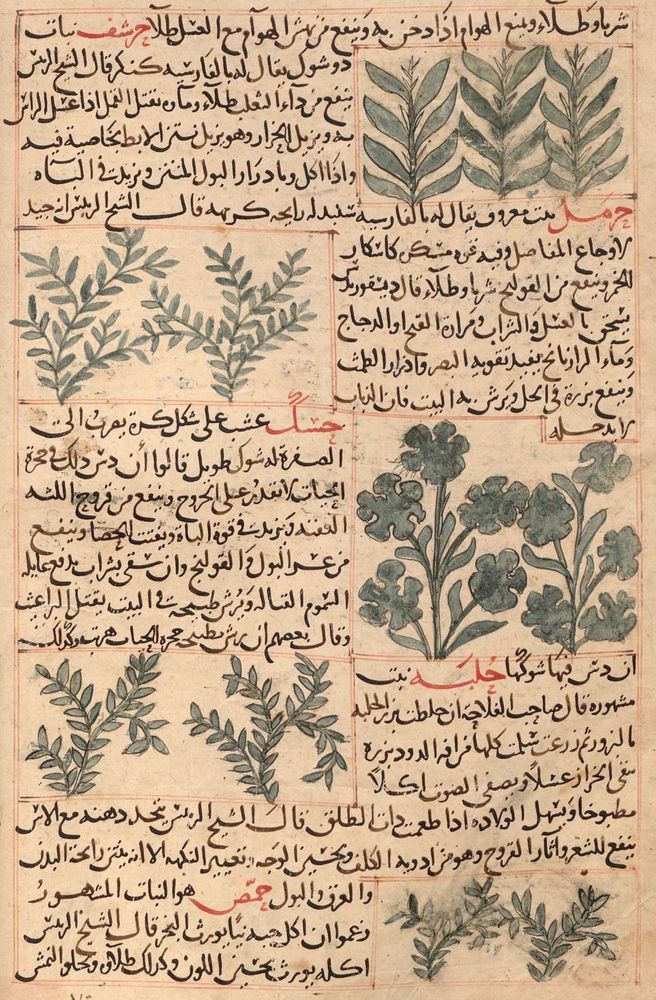 شربا وطلاء ويمنع الهوام اذا دخن به وينفع من نهش الهوام مع العسل طلا حرشف نبات
ذو شوك يقال له بالفارسيه كنكر قال الشيخ الريس
ينفع من داء الثعلب طلاء وماؤه يقتل القمل اذا غسل الراس
به ويزيل الحزاز وهو يزيل نتن الابط بخاصية فيه
واذا اكل وبادرار البول المنتن ويزيد في الباه
حرمل نبت معروف يقال له بالفارسيه سپند له رايحه كريهه قال الشيخ الريس انه جيد
لاوجاع المفاصل وفيه قوه مسكره كاسكار
الخمر وينفع من القولنج شربا وطلاء قال ديسقوريدس
يسحق بالعسل والشراب ومرارة القبج او الدجاج
وماء الرازيانج يفيد تقويه البصر وادرار الطمث
وينفع بزره في الخل ويرش به البيت فان الذباب
لا يدخله
حسك عشب على شكل كرة يضرب الى
الصفرة له شوك طويل قالوا ان دس ذلك في حجرة
الحيات لا تقدر على الخروج وينفع من قروح اللثه
العفنه ويزيد في قوة الباه ويفتت الحصا وينفع
من عسر البول والقولنج وان سقي بشراب يدفع غايلة
السموم القتاله ويرش طبيخه في البيت يقتل البراغيث
وقال بعضهم ان رش بطبيخه حجرة الحيات هربت وكذلك
ان دس فيها شوكها حلبه نبت
مشهوره قال صاحب الفلاحة ان خلطت بزر الحلبه
بالبزور ثم زرعت سلمت كلها من افه الدود بزره
ينقى الحزاز غسلا ويصفي الصوت اكلا
مطبوخا ويسهل الولاده اذا طعمت ذات الطلق قال الشيخ الريس يتخذ دهنه مع الاس
ينفع للشعر واثار القروح وهو من ادوية الكلف وتحسين الوجه وتغيير النكهه الا انه ينتن رائحة البدن
والعرق والبول حمص هو النبات المشهور
زعموا ان اكل حبه نيا يورث البخر قال الشيخ الريس
اكله يورث تحسين اللون وكذلك طلاؤه ويجلو النمش